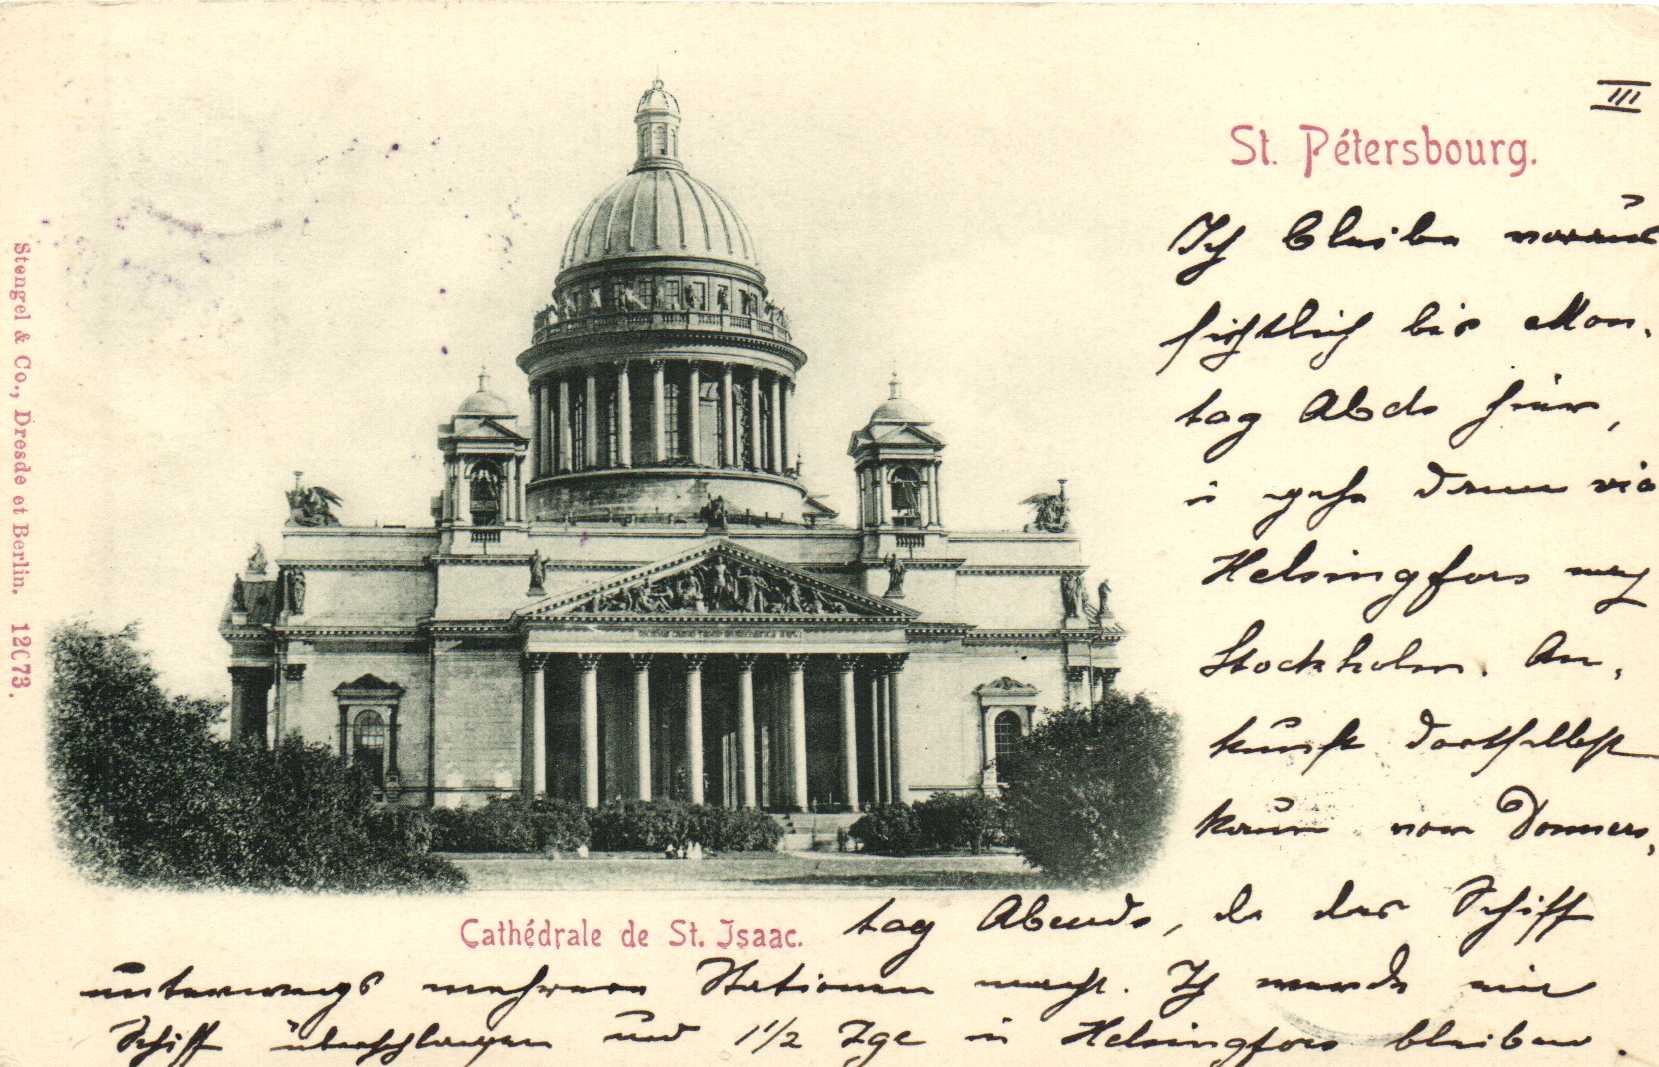 III
St. Pétersbourg.
Ich bleibe voraus
sichtlich bis Mon-
tag Abds hier,
u gehe dann via
Helsingfors nach
Stockholm. An-
kunft dortselbst
kaum vor Donners-
tag Abends, da das Schiff
unterwegs mehrere Stationen macht. Ich werde ein
Schiff überschlagen und 1 1/2 Tge in Helsingfors bleiben.
Cathédrale de St. Isaac.
Stengel & Co., Dresde et Berlin. 12073.